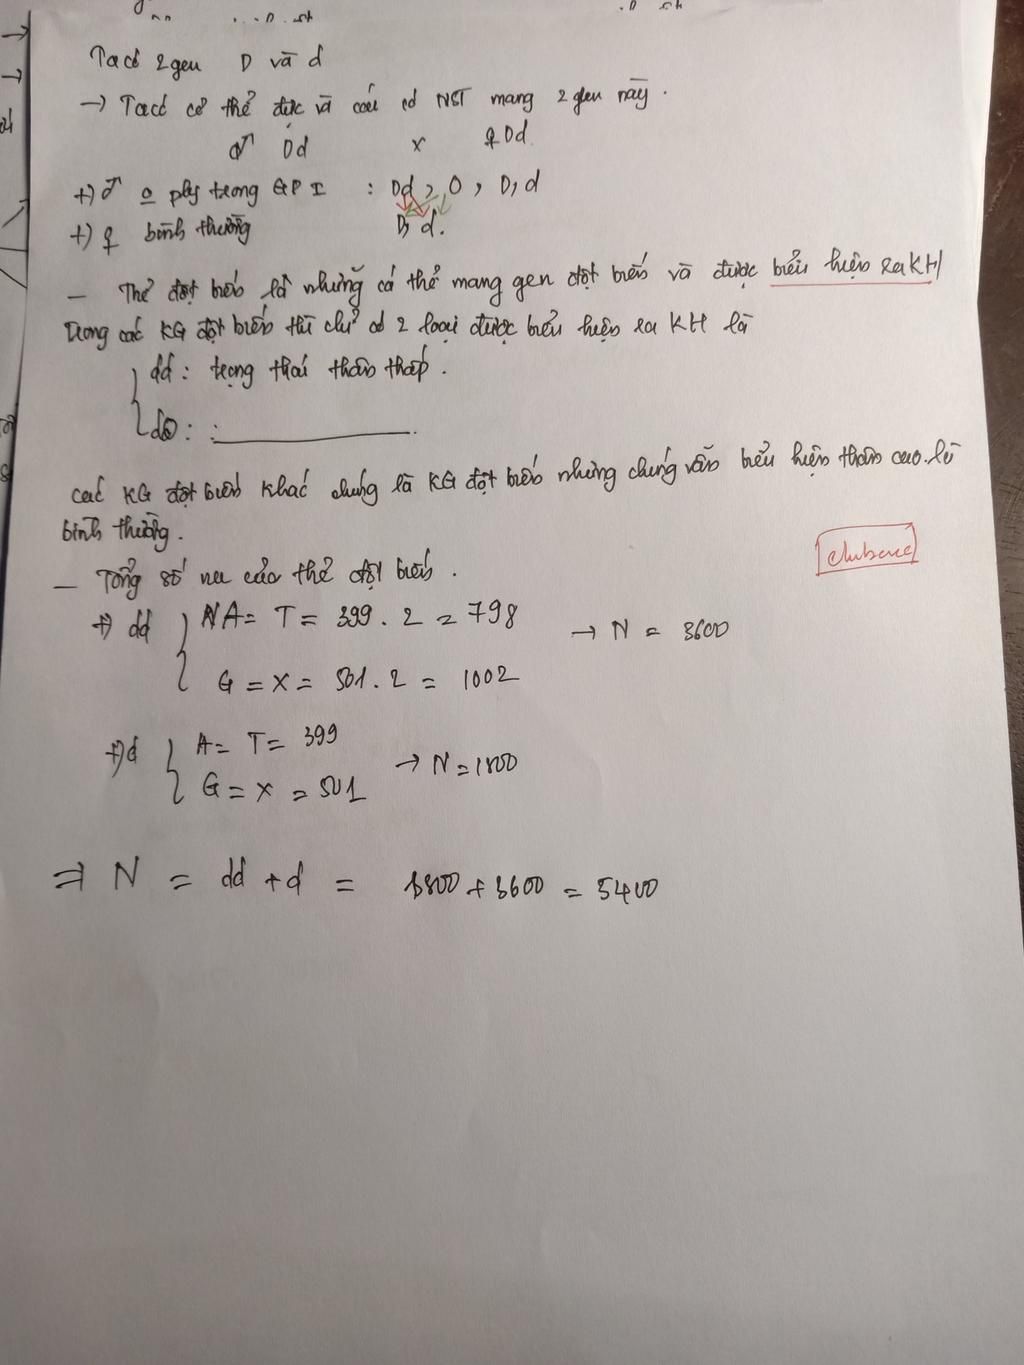 Ta có 2 gen D và d
→ Ta có cơ thể đực và cái có NST mang 2 gen này.
♂ Dd x ♀ Dd
+) ♂ o ply trong GP I : Dd, O, D, d
+) ♀ bình thường D, d.
- Thể đột biến là những cá thể mang gen đột biến và được biểu hiện ra KH
Trong các KG đột biến thì chỉ có 2 loại được biểu hiện ra KH là
dd : trạng thái thân thấp.
dO :
các KG đột biến khác chúng là KG đột biến nhưng chúng vẫn biểu hiện thân cao. là
bình thường.
- Tổng số nu của thể đột biến.
+) dd A = T = 399 . 2 = 798 → N = 3600
G = X = 501 . 2 = 1002
+) d A = T = 399
G = X = 501 → N = 1800
⇒ N = dd + d = 1800 + 3600 = 5400